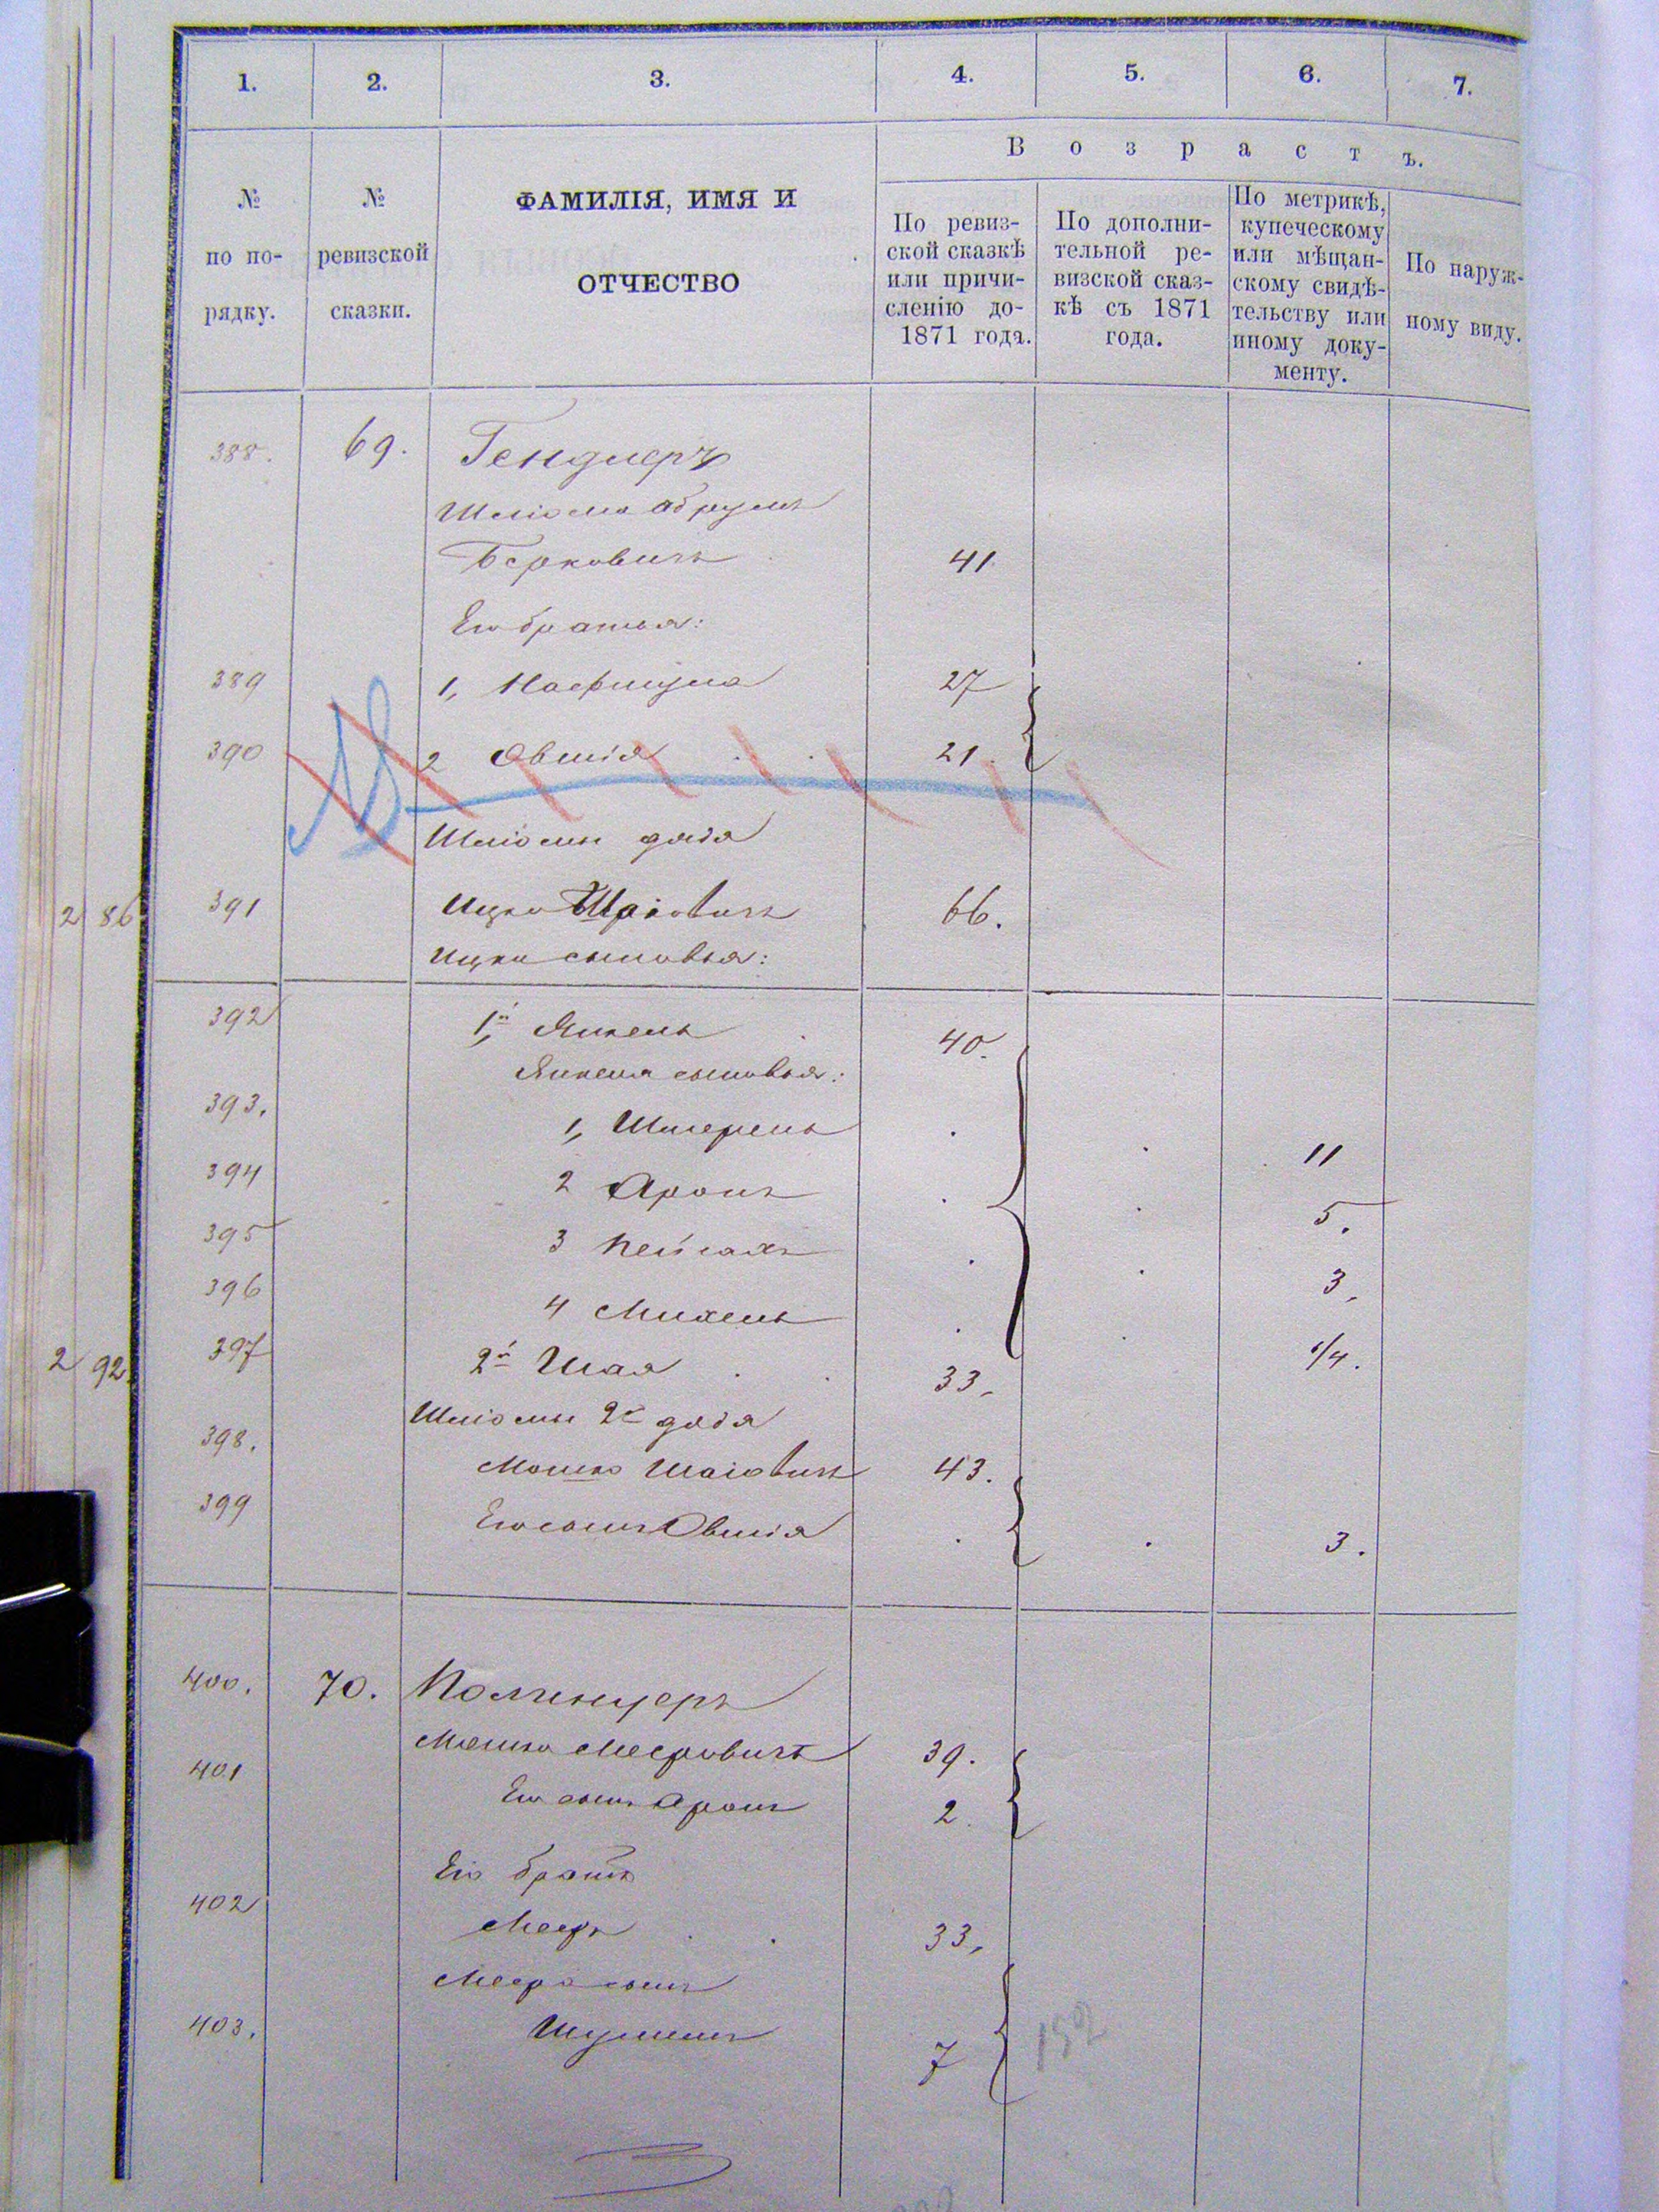 1. 2. 3. 4. 5. 6. 7.
В о з р а с т ъ.
№
по по-
рядку.
№
ревизской
сказки.
ФАМИЛІЯ, ИМЯ И
ОТЧЕСТВО
По ревиз-
ской сказкѣ
или причи-
сленію до-
1871 года.
По дополни-
тельной ре-
визской сказ-
кѣ съ 1871
года.
По метрикѣ,
купеческому
или мѣщан-
скому свидѣ-
тельству или
иному доку-
менту.
По наруж-
ному виду.
388. 69. Гендлеръ
Шліома Абрумъ
Берковичъ 41
Его братья:
389 1, Нафтула 27
390 2 Овшія 21.
Шліомы дядя
2 86 391 Ицко Шаіовичъ 66.
Ицки сыновья:
392 1й Янкель 40.
Янкеля сыновья:
393. 1, Шмерель 11
394 2 Аронъ 5.
395 3 Пейсахъ 3.
396 4 Михель 1/4.
2 92. 397 2й Шая 33.
Шліомы 2й дядя
398. Мошко Шаіовичъ 43.
399 Его сынъ Овшія 3.
400. 70.
Мошко Мееровичъ 39.
401 Его сынъ Аронъ 2.
Его братъ
402 Мееръ 33.
Меера сынъ
403. 7
152